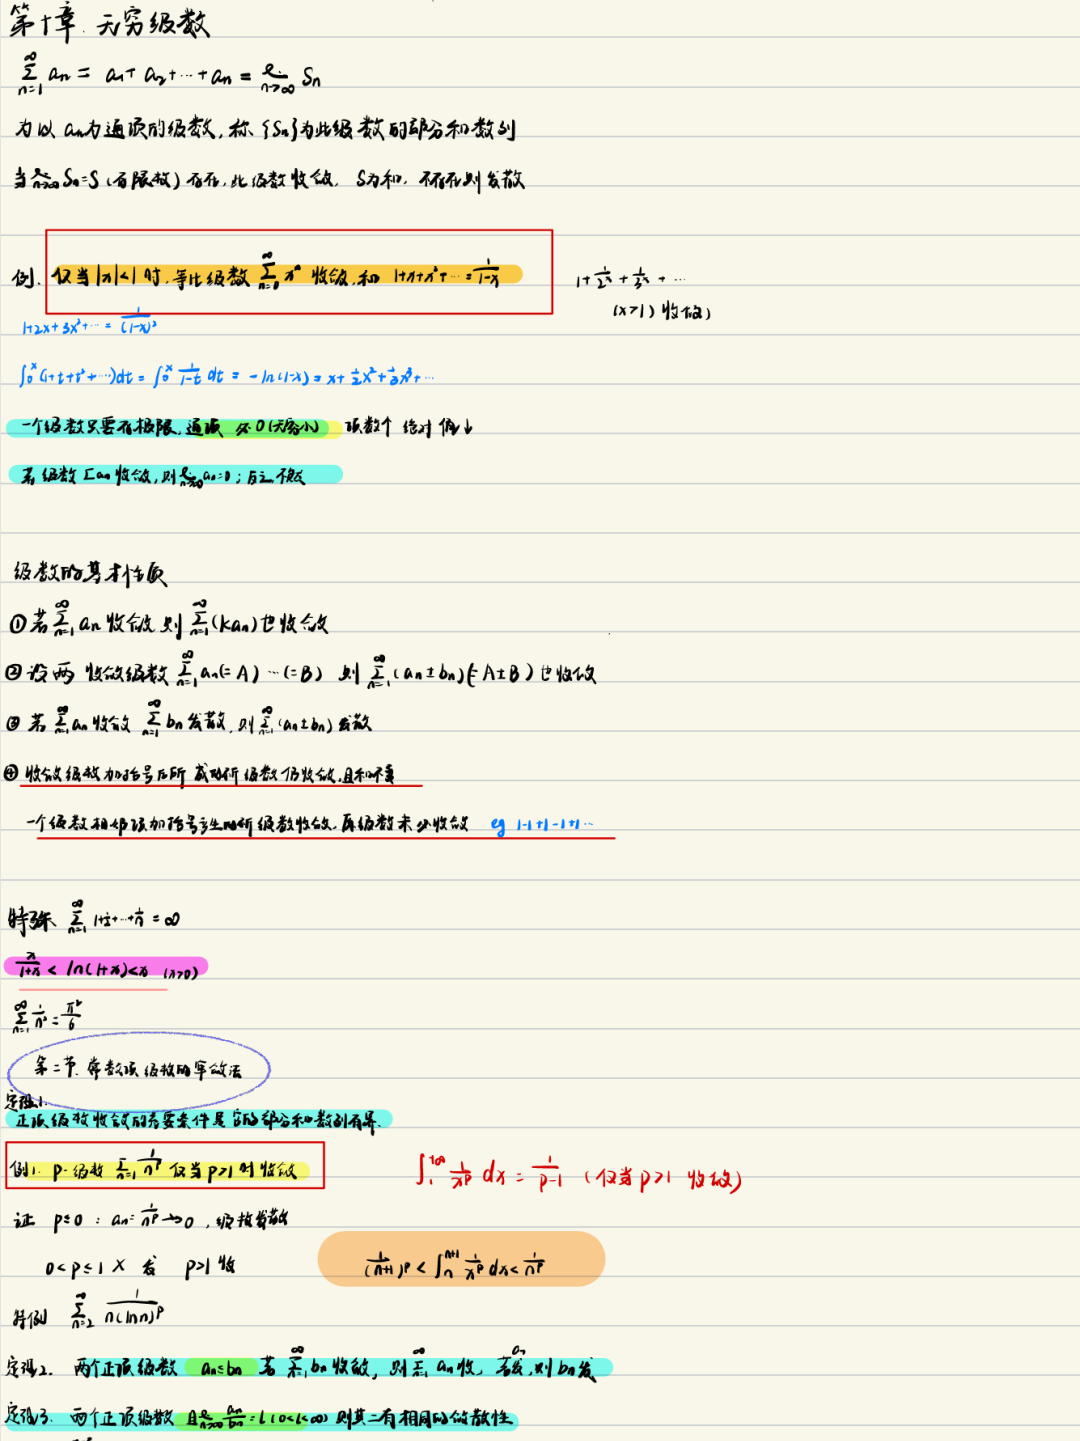 第十章. 无穷级数
∞∑n=1 an = a1+ a2+···+an = ℓ. n→∞ Sn
为以an为通项的级数, 称{Sn}为此级数的部分和数列
当 n→∞ Sn=S (有限数) 存在, 此级数收敛, S为和, 不存在则发散
例. 仅当|x|<1时, 等比级数 ∞∑n=0 xⁿ 收敛, 和 1+x+x²+··· = 1/(1-x)
1+1/2ˣ+1/3ˣ+···
(x>1) 收敛)
1+2x+3x²+··· = 1/(1-x)²
∫₀ˣ(1+t+t²+···)dt = ∫₀ˣ 1/(1-t) dt = -ln(1-x) = x+½x²+⅓x³+···
一个级数只要有极限, 通项必0(无穷小) 项数个 绝对值↓
若级数∑an收敛, 则 n→∞ an=0; 反之不成
级数的基本性质
① 若 ∞∑n=1 an 收敛 则 ∞∑n=1 (kan) 也收敛
② 设两 收敛级数 ∞∑n=1 an(=A) ···(=B) 则 ∞∑n=1 (an±bn)(=A±B) 也收敛
③ 若 ∞∑n=1 an 收敛 ∞∑n=1 bn 发散, 则 ∞∑n=1 (an±bn) 发散
④ 收敛级数加括号后所成的新级数仍收敛, 且和不变
一个级数相邻项加括号产生的新级数收敛, 原级数未必收敛 eg 1-1+1-1+1···
特殊 ∞∑n=1 1+½+···+1/n = ∞
x/(1+x) < ln(1+x) < x (x>0)
∞∑n=1 1/n² = π²/6
第二节. 常数项级数的审敛法
定理1.
正项级数收敛的充要条件是它的部分和数列有界.
例1. p-级数 ∑n=1 1/nᵖ 仅当p>1时收敛
∫₁^+∞ 1/xᵖ dx = 1/(p-1) (仅当p>1 收敛)
证 p≤0 : an=1/nᵖ ↛0, 级数发散
0<p≤1 × 发 p>1 收
1/(n+1)ᵖ < ∫ₙⁿ⁺¹ 1/xᵖ dx < 1/nᵖ
特例 ∞∑n=2 1/(n(lnn)ᵖ)
定理2. 两个正项级数 an≤bn 若 ∞∑n=1 bn收敛, 则 ∞∑n=1 an收, 若an发, 则bn发
定理3. 两个正项级数 且 n→∞ an/bn = l (0<l<∞) 则其二有相同的敛散性